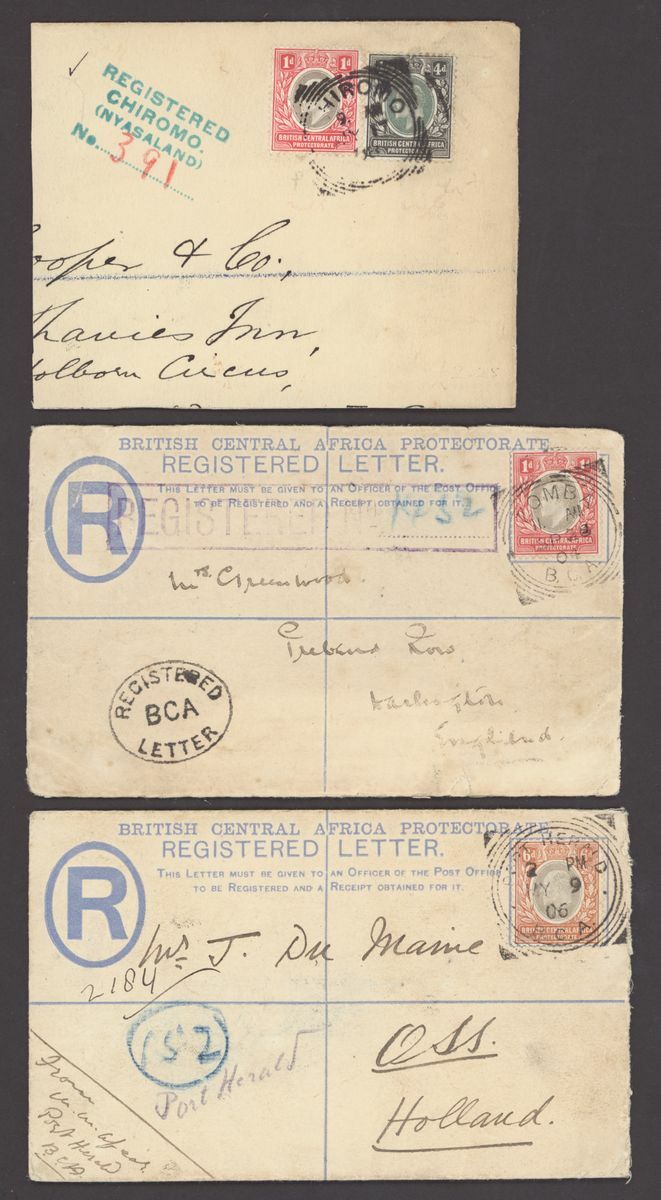 REGISTERED
CHIROMO.
(NYASALAND)
No. 391
1d 4d
BRITISH CENTRAL AFRICA PROTECTORATE
BRITISH CENTRAL AFRICA PROTECTORATE
CHIROMO
ooper & Co.,
Thavies Inn,
Holborn Circus,
BRITISH CENTRAL AFRICA PROTECTORATE
REGISTERED LETTER.
THIS LETTER MUST BE GIVEN TO AN OFFICER OF THE POST OFFICE
TO BE REGISTERED AND A RECEIPT OBTAINED FOR IT.
R
REGISTERED No
1d 1d
BRITISH CENTRAL AFRICA
PROTECTORATE
ZOMBA
B.C.A.
Mrs Greenwood
Darlington
England.
REGISTERED
BCA
LETTER
BRITISH CENTRAL AFRICA PROTECTORATE
REGISTERED LETTER.
THIS LETTER MUST BE GIVEN TO AN OFFICER OF THE POST OFFICE
TO BE REGISTERED AND A RECEIPT OBTAINED FOR IT.
R
6d
BRITISH CENTRAL AFRICA
PROTECTORATE
PORT HERALD
2 PM
MY 9
06
B.C.A.
Mrs J. Du Maine
2184
152
Port Herald
OSS.
Holland.
From
Port Herald
BCA